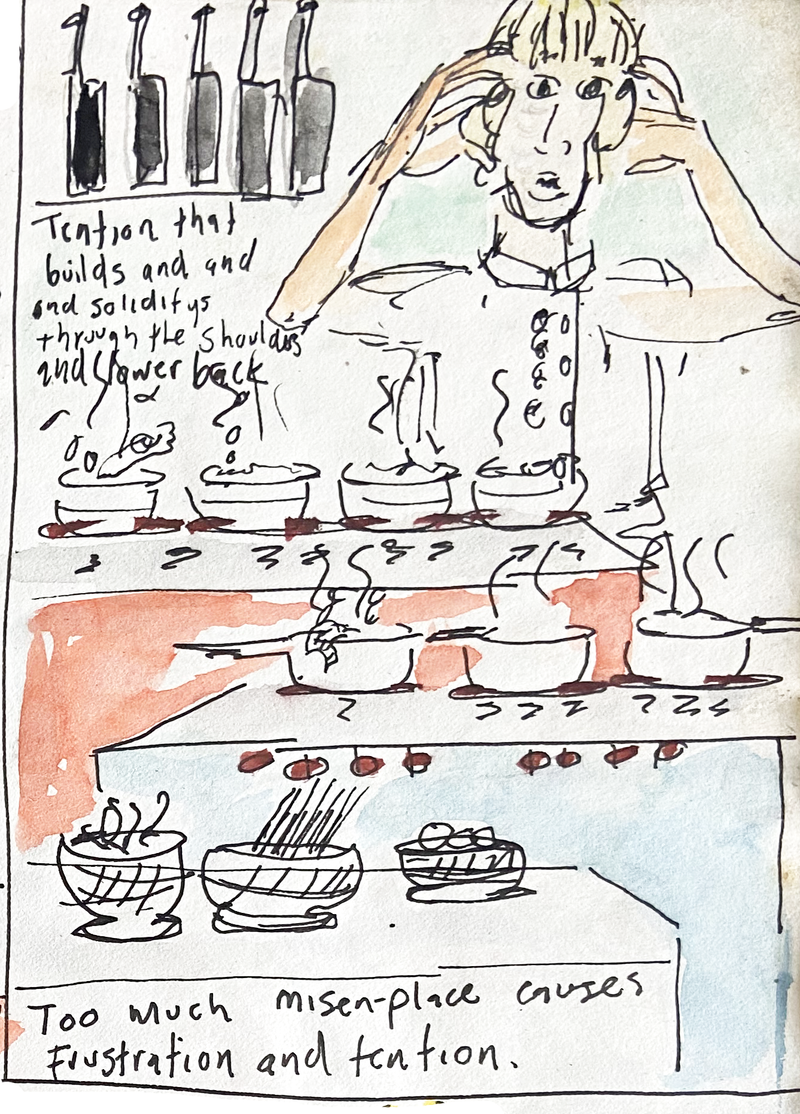 Tention that
builds and and
and soliditys
through the shoulders
and lower back
Too much misen-place causes
Frustration and tention.